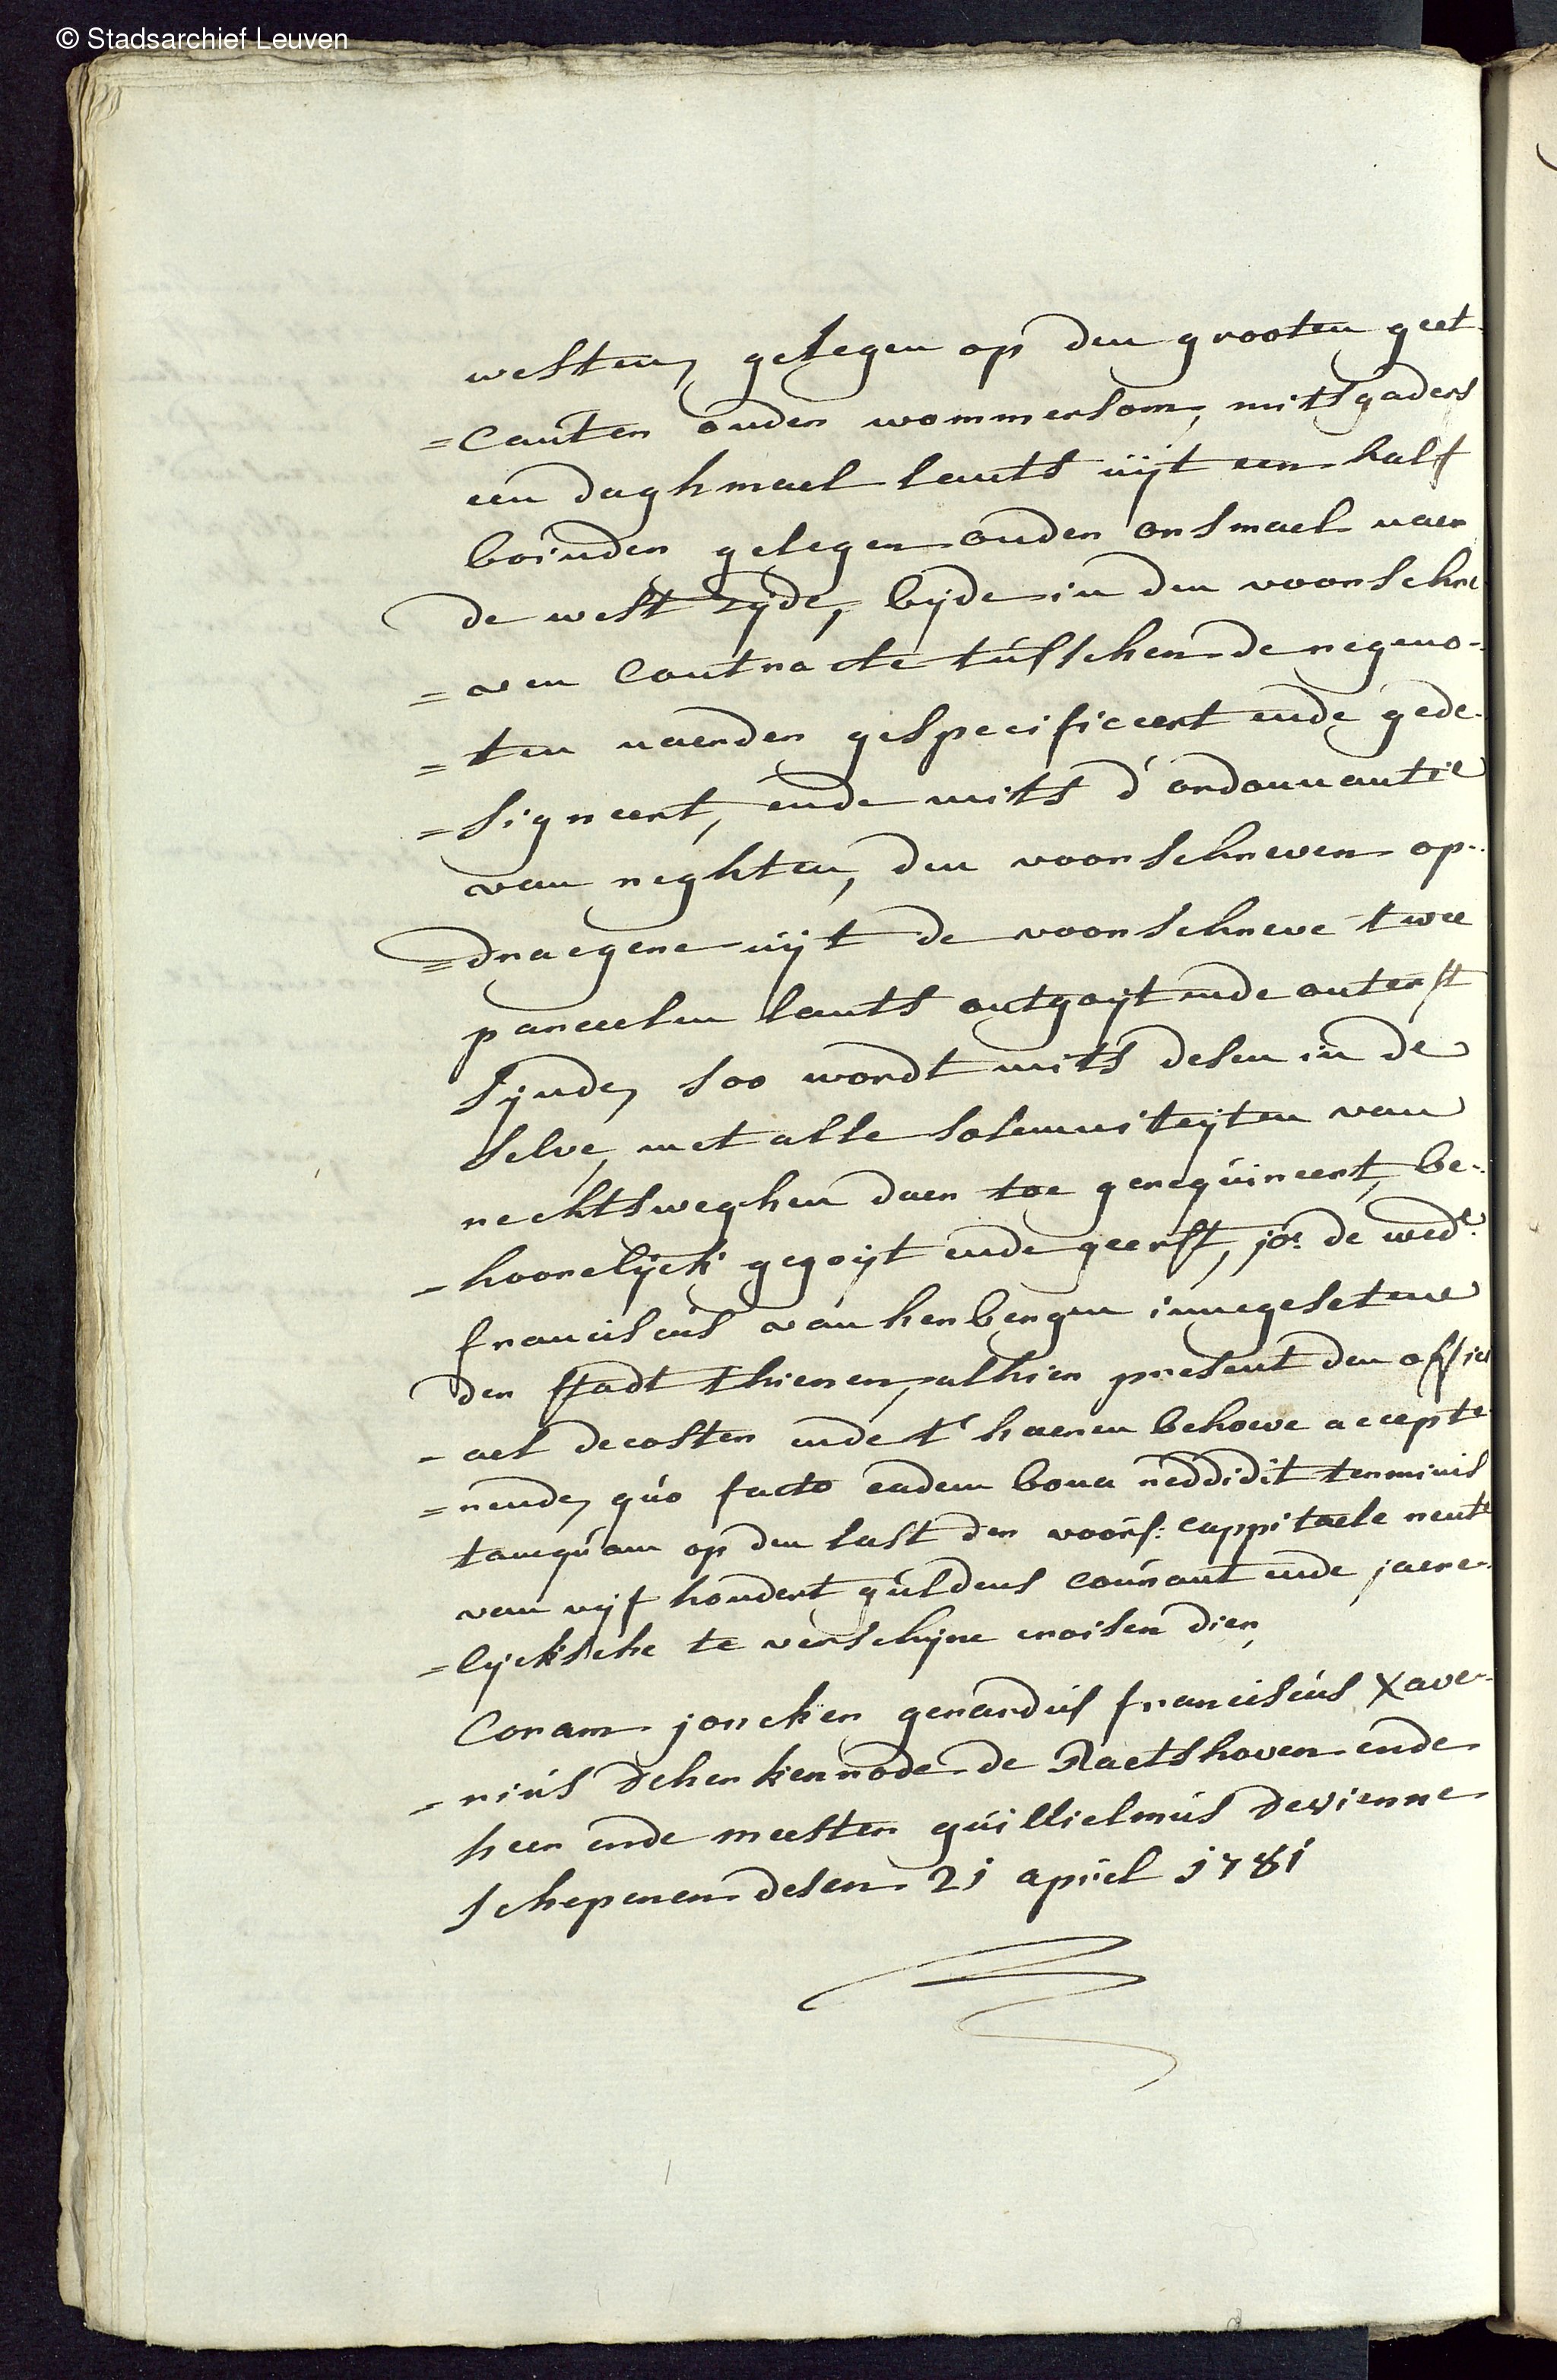 © Stadsarchief Leuven
westen, gelegen op den grooten geet
=canter onder wommersom, mitsgaders
een daghmael lants uijt een half
boinder gelegen onder orsmael naer
de west zyde, byde in den voorschre
=ven contracte tusschen de regeno-
=ten naerder gespecificeert ende gede-
=signeert, ende mits d'ordonnantie
van reghten, den voorschreven op-
=draegere uijt de voorschreve twee
parceelen lants ontgoijt ende onterft
sijnde, soo wordt mits desen in de
selve, met alle solemniteijten van
rechtsweghen daer toe gerequireert, be-
-hoorelijck gegoijt ende geerft, jo.e de wed.e
franciscus van herbergen innegesetene
der stadt thienen, alhier present den offici
-ael decoster ende t'haeren behoeve accepte
=rende, quo facto eadem bona reddidit terminis
tamquam op den last der voors: cappitaele rente
van vijf hondert guldens courant ende jaere-
=lijcksche te verschyne croisen dier,
Coram joncker gerardus franciscus Xave-
-rius Deherkenrode de Raetshoven ende
heer ende meester guillielmus Devienne
schepenen desen 21 april 1781